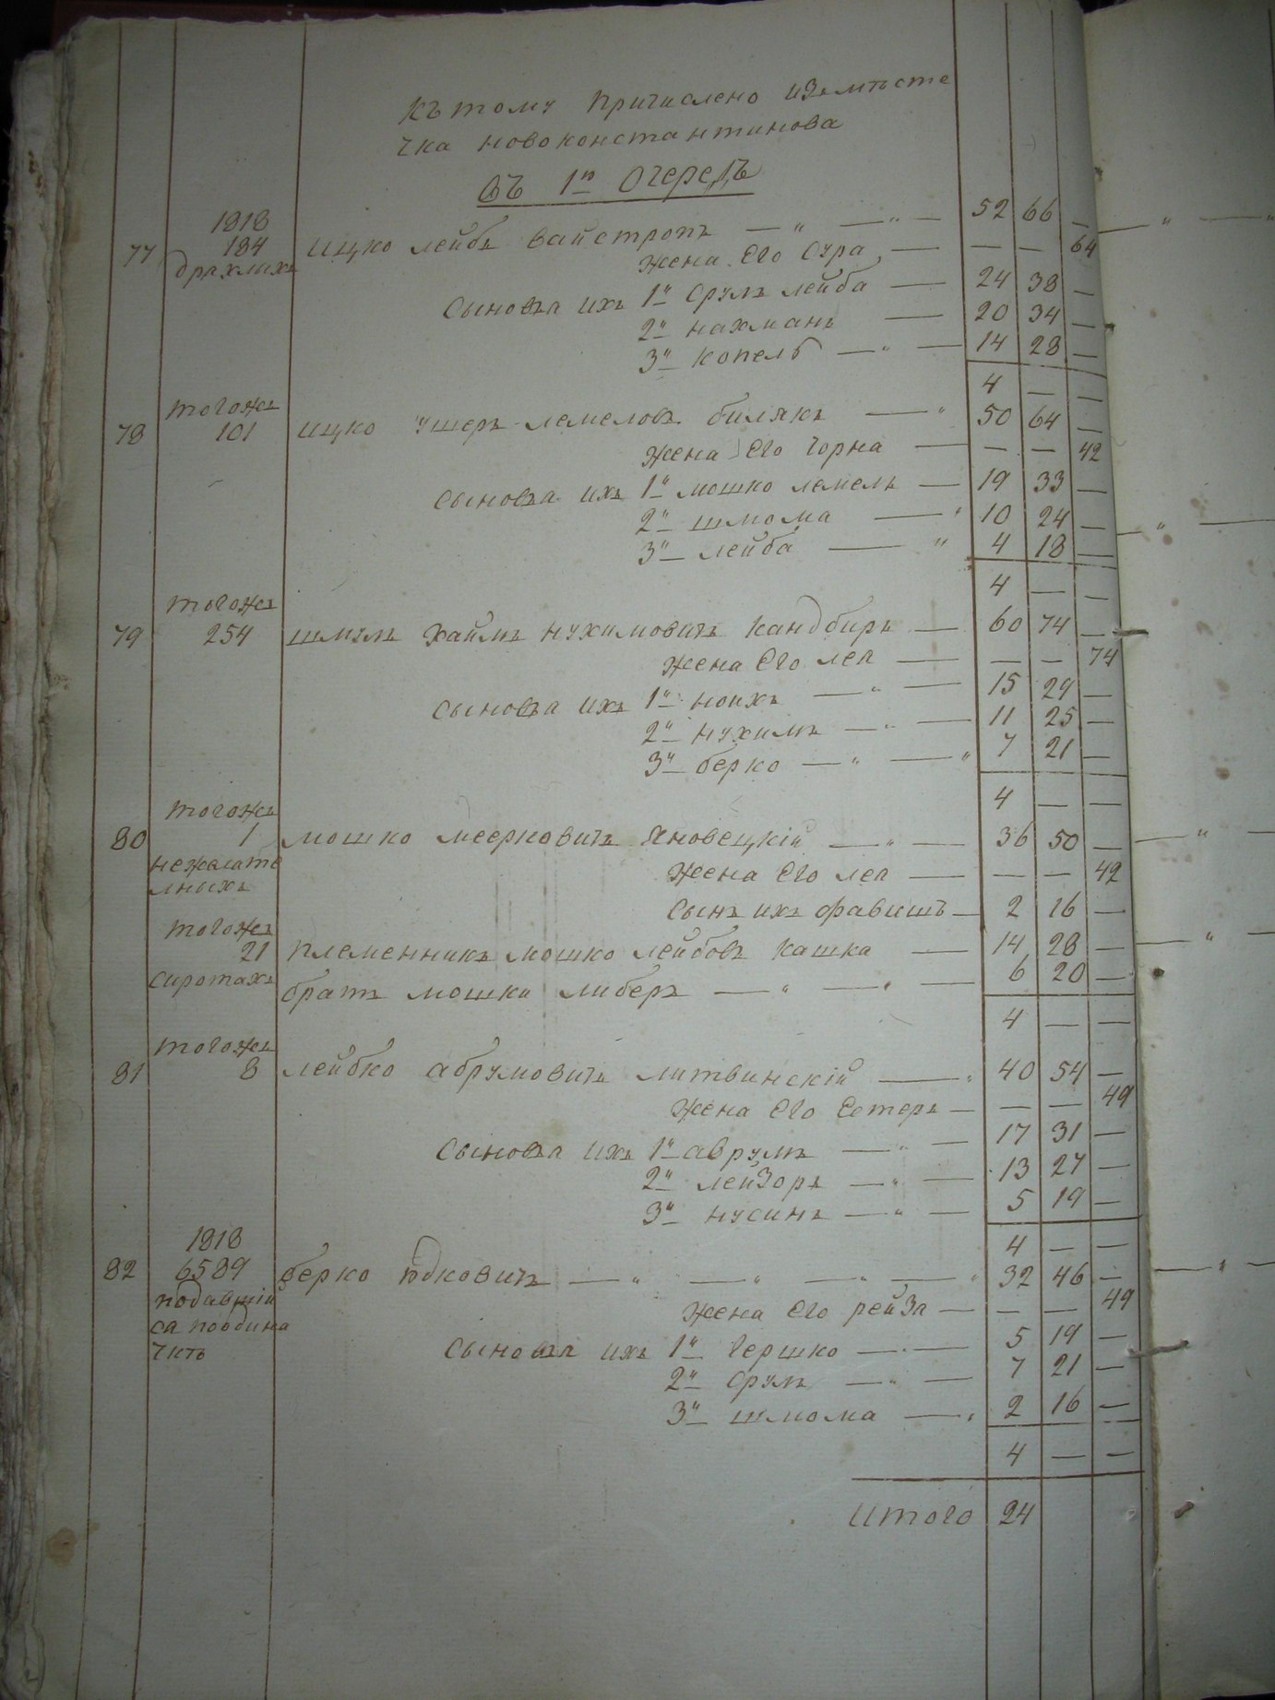 Къ тому причислено изъ мѣсте
чка новоконстантинова
Въ 1й Очередь
1818
77 184 Ицко Лейбъ Вайстропъ — " — " — 52 66 —
дряхлихъ Жена Его Сура — — — 64
Сыновья ихъ 1й Срулъ Лейба — 24 38 —
2й Нахманъ — 20 34 —
3й Копель — " — 14 28 —
4 — —
тогожъ
78 101 Ицко Ушеръ Лемеловъ билякъ — " 50 64 —
Жена Его Чорна — — — 42
Сыновья ихъ 1й Мошко Лемель — 19 33 —
2й Шлома — " 10 24 —
3й Лейба — " 4 18 —
4 — —
тогожъ
79 254 Шмуль Хаимъ Нухимовичъ Кандбиръ — 60 74 —
Жена Его Лея — — — 74
Сыновья ихъ 1й Ноихъ — " — 15 29 —
2й Нухимъ — " — 11 25 —
3й берко — " — " 7 21 —
4 — —
тогожъ
80 1 Мошко Меерковичъ Яновецкій — " — 36 50 —
нежелате Жена Его Лея — — — 42
лныхъ Сынъ ихъ Фавишъ — 2 16 —
тогожъ
21 племенникъ Мошко Лейбовъ Кашка — 14 28 —
сиротахъ братъ Мошки Либеръ — " — " — 6 20 —
4 — —
тогожъ
81 8 Лейбко Абрумовичъ Литвинскій — " 40 54 —
Жена Его Естеръ — — — 49
Сыновья ихъ 1й Аврумъ — " — 17 31 —
2й Лейзоръ — " — 13 27 —
3й Нусинъ — " — 5 19 —
4 — —
1818
82 6589 берко Юдковичъ — " — " — " — " 32 46 —
подавшій Жена Его Рейза — — — 49
са поодина Сыновья ихъ 1й Гершко — " — 5 19 —
чкѣ 2й Срулъ — " — 7 21 —
3й Шлома — " 2 16 —
4 — —
Итого 24